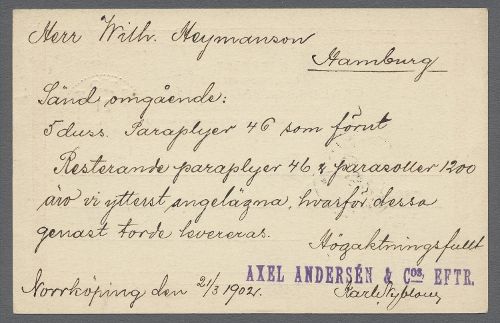 Herr Wilh. Heymanson
Hamburg
Sänd omgående:
5 duss. Paraplyer 46 som förut
Resterande paraplyer 46 & parasoller 1200
äro vi ytterst angelägna, hvarför dessa
genast torde levereras.
Högaktningsfullt
AXEL ANDERSÉN & Cos. EFTR.
Norrköping den 21/3 1902.
Karl